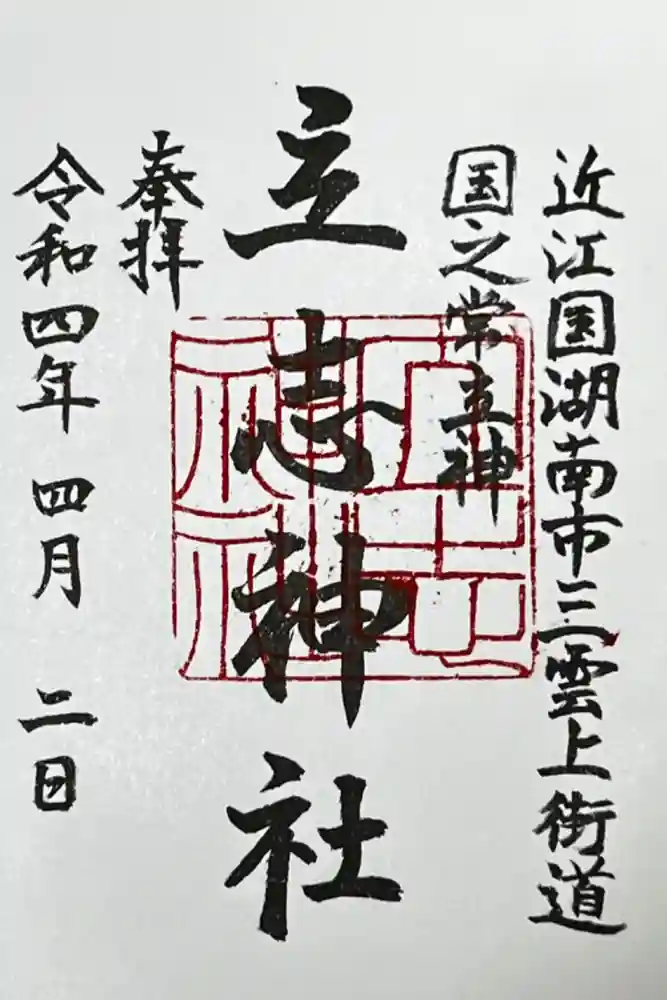 近江国湖南市三雲上街道
国之常立神
立志神社
奉拝
令和四年 四月 二日